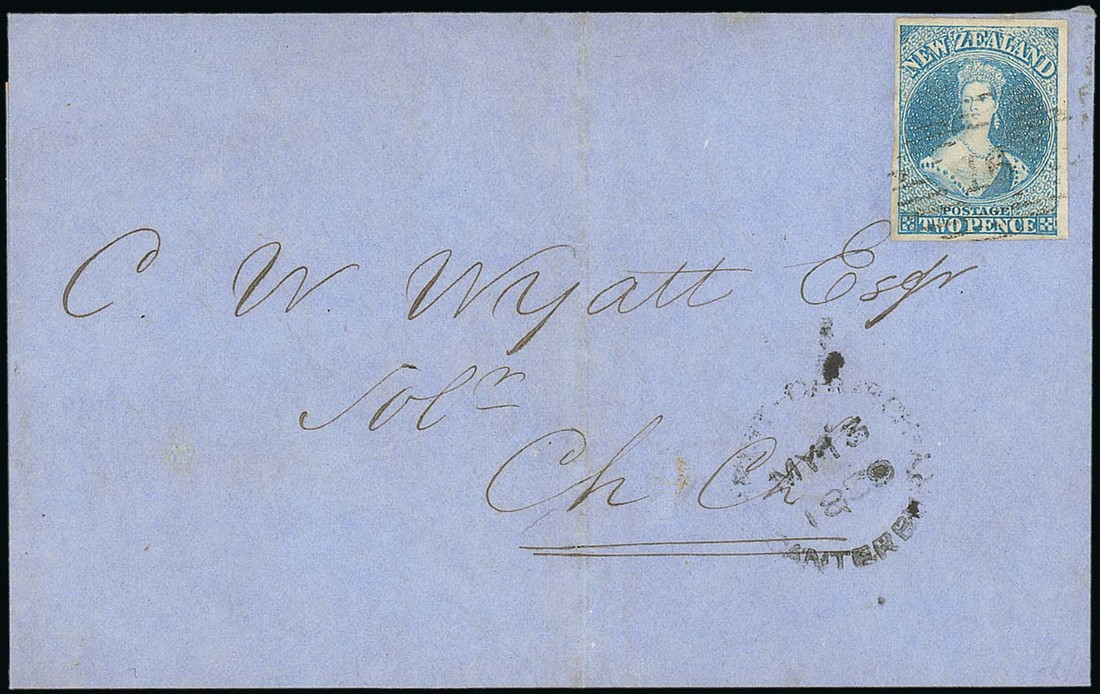 NEW ZEALAND
POSTAGE
TWO PENCE
C. W. Wyatt Esqr.
Solr
Ch Ch
MY 13